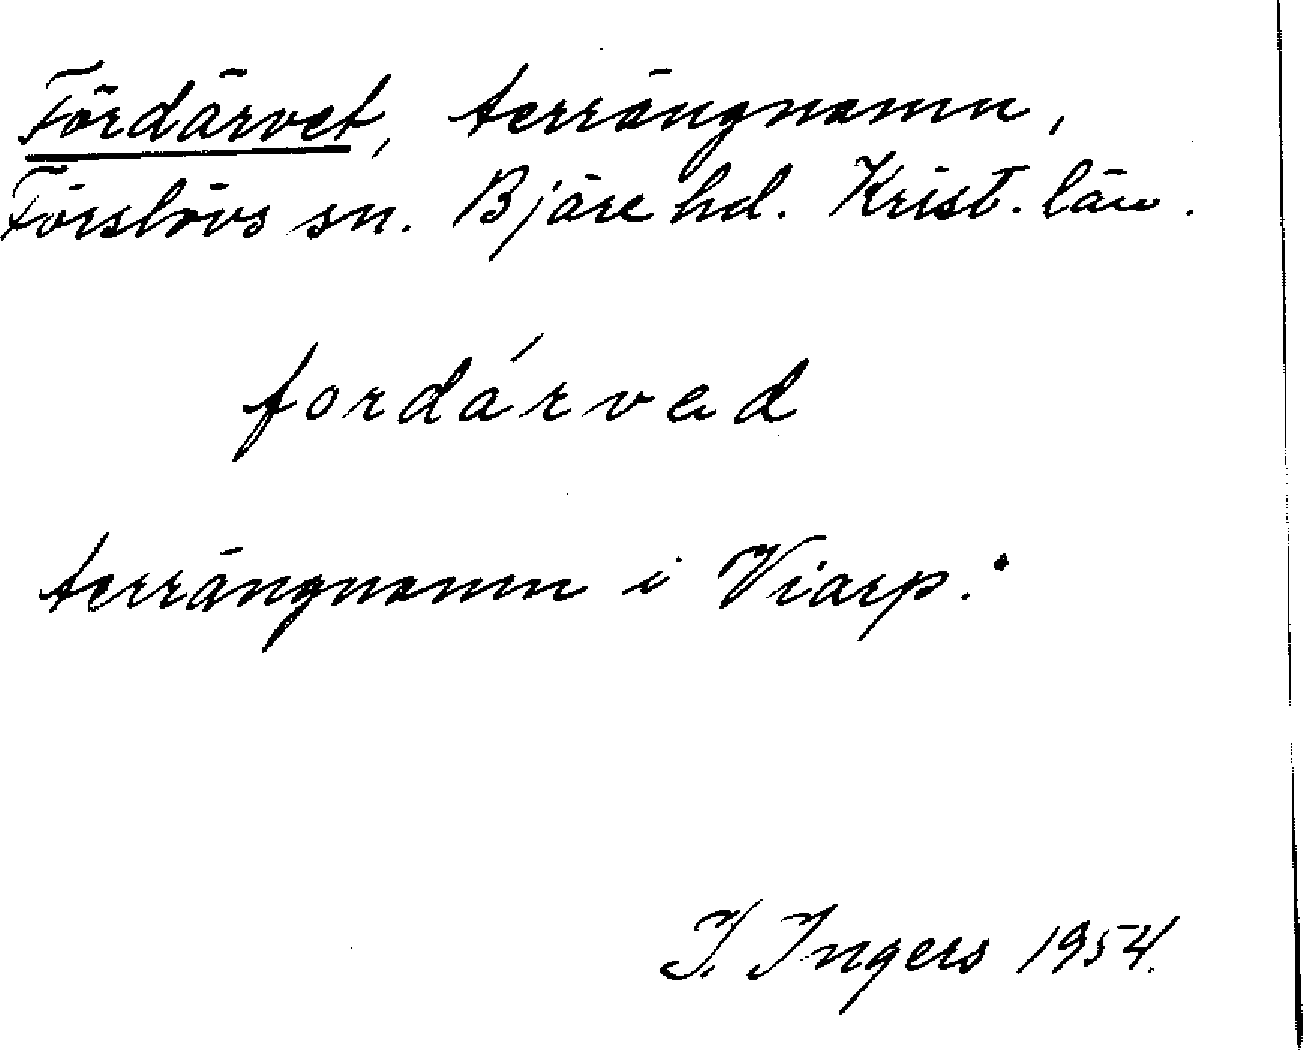 Fördärvet, terrängnamn,
Förslövs sn. Bjäre hd. Krist. län.
fordárvad
terrängnamn i Viarp.
I. Ingers 1954.